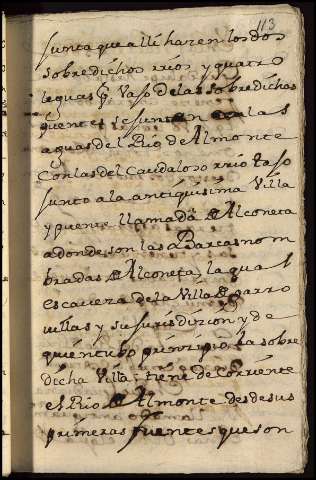 113
junta que alli hazen los dos
sobredichos rrios y quatro
leguas
de las sobredichas
puentes se juntan las
aguas del Rio de Almonte
con las del caudaloso rrio taxo
junto a la antiquissima Villa
y puente llamada de Alconeta
adonde son las Barcas nom
bradas de Alconeta, la qual
es caveza de la Villa de garro
villas y su jurisdizion y de
quien tubo principio la sobre
dicha Villa; tiene de corriente
el Rio de Almonte desde sus
primeras fuentes que son